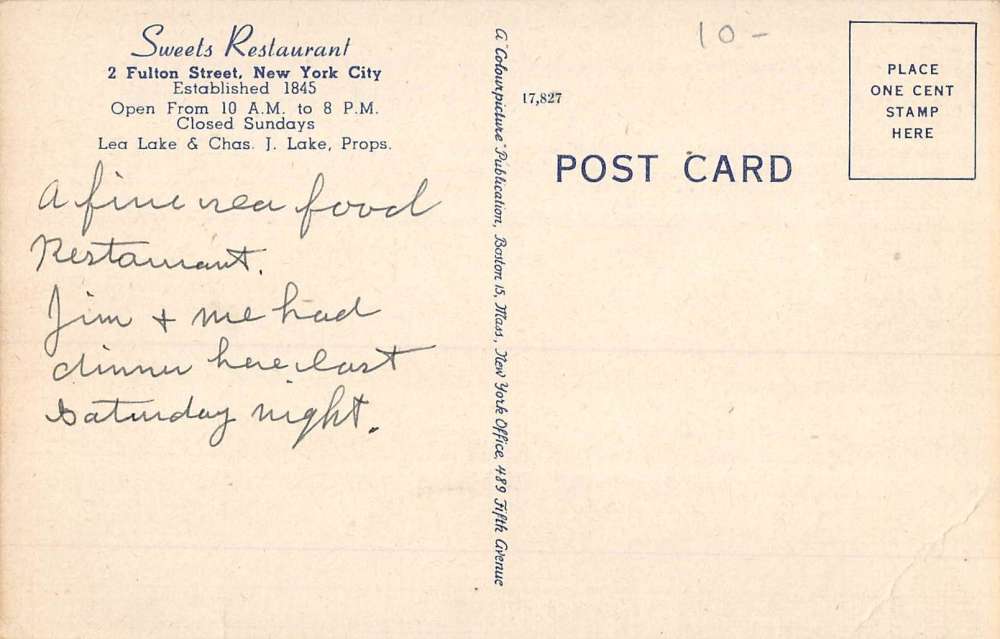 Sweets Restaurant
2 Fulton Street, New York City
Established 1845
Open From 10 A.M. to 8 P.M.
Closed Sundays
Lea Lake & Chas. J. Lake, Props.
A fine sea food
Restaurant.
Jim + me had
dinner here last
Saturday night.
A "Colourpicture" Publication, Boston 15, Mass., New York Office, 489 Fifth Avenue
17,827
10-
POST CARD
PLACE
ONE CENT
STAMP
HERE